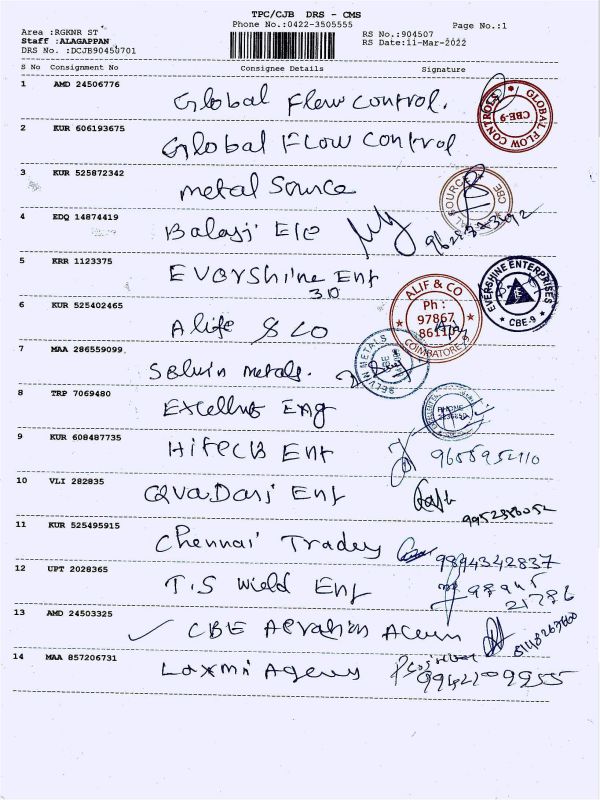 TPC/CJB DRS - CMS
Phone No.:0422-3505555
Page No.:1
Area :RGKNR ST
Staff :ALAGAPPAN
DRS No. :DCJB90450701
RS No.:904507
RS Date:11-Mar-2022
S No Consignment No Consignee Details Signature
1 AMD 24506776 Global Flow Control.
GLOBAL FLOW CONTROLS CBE-9
2 KUR 606193675 Global Flow Control
3 KUR 525872342 metal Source
SOURCE CBE
4 EDQ 14874419 Balaji Ele
5 KRR 1123375 Evershine Ent
30
EVERSHINE ENTERPRISES CBE-9
6 KUR 525402465 Alife & Co
ALIF & CO Ph: 97867 COIMBATORE
7 MAA 286559099 Selvin metals.
SELVIN METALS
8 TRP 7069480 Eng
9 KUR 608487735 Hitech Ent
10 VLI 282835 Ent
9952386052
11 KUR 525495915 Chennai Trades 9894342837
12 UPT 2028365 T.S Wield Ent 98945
21786
13 AMD 24503325 CBE
14 MAA 857206731 Laxmi Agency